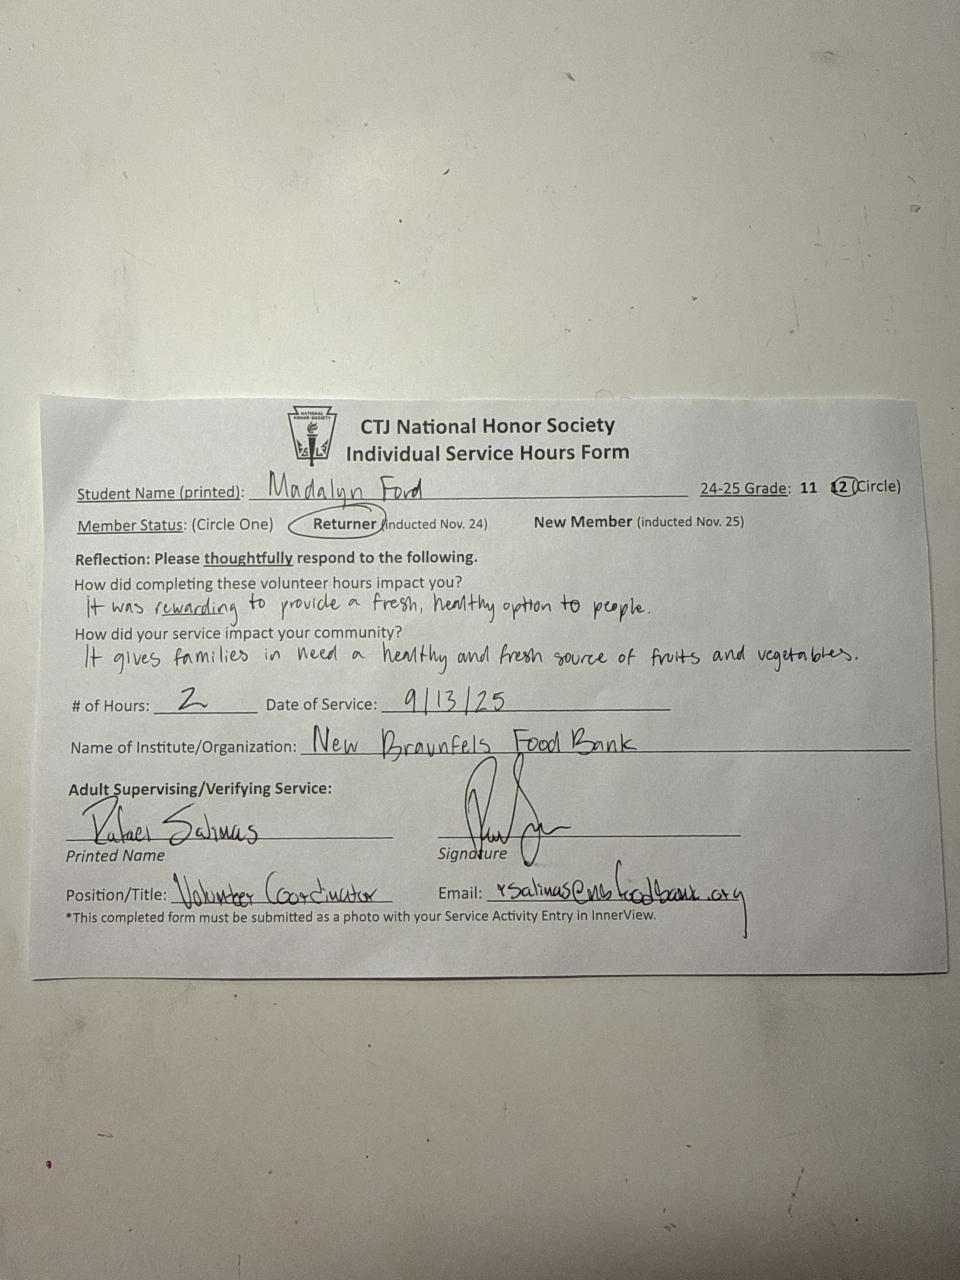 NATIONAL
HONOR SOCIETY
CTJ National Honor Society
Individual Service Hours Form
Student Name (printed): Madalyn Ford 24-25 Grade: 11 12 (Circle)
Member Status: (Circle One) Returner (inducted Nov. 24) New Member (inducted Nov. 25)
Reflection: Please thoughtfully respond to the following.
How did completing these volunteer hours impact you?
It was rewarding to provide a fresh, healthy option to people.
How did your service impact your community?
It gives families in need a healthy and fresh source of fruits and vegetables.
# of Hours: 2 Date of Service: 9/13/25
Name of Institute/Organization: New Braunfels Food Bank
Adult Supervising/Verifying Service:
Rafael Salinas
Printed Name Signature
Position/Title: Volunteer Coordinator Email: rsalinas@nbfoodbank.org
*This completed form must be submitted as a photo with your Service Activity Entry in InnerView.